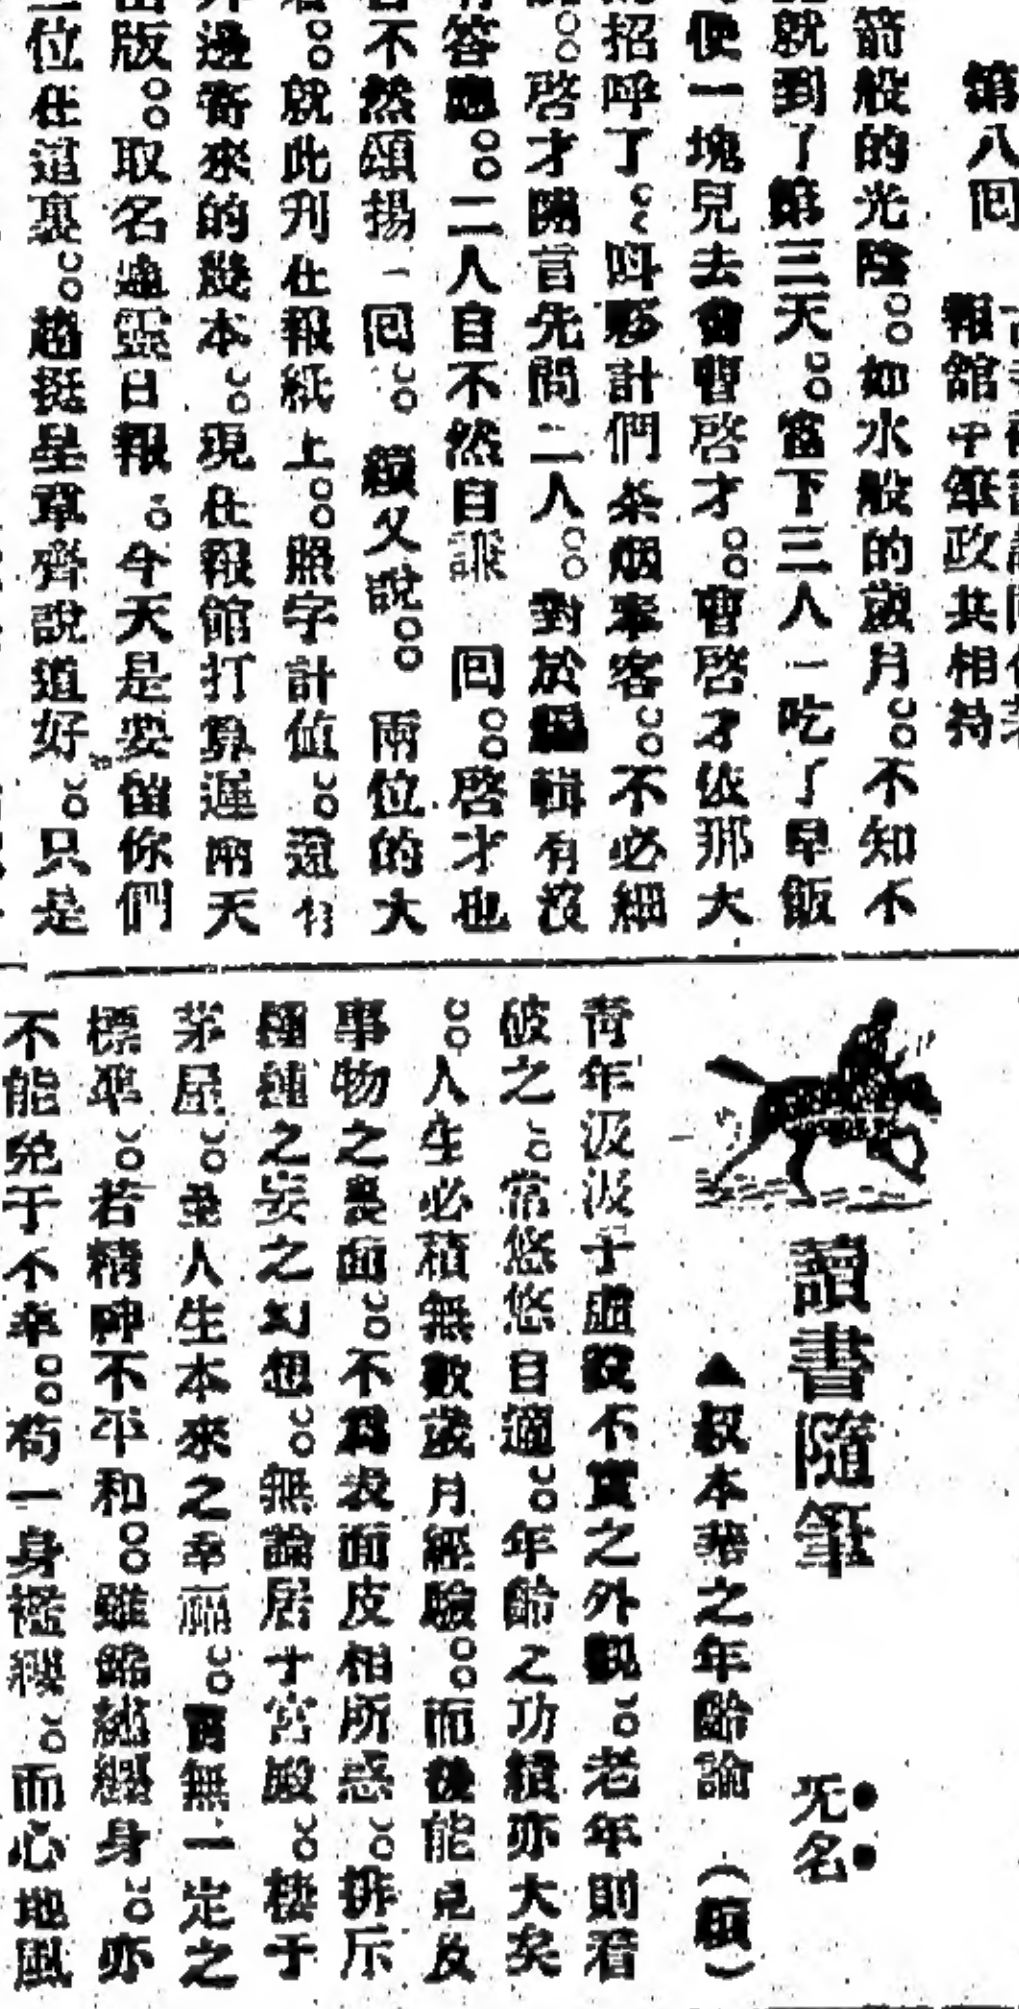 第八回
報館中筆政共相持
箭般的光陰。。如水般的歲月。。不知不
就到了第三天。。當下三人一吃了早飯
便一塊兒去會曹啓才。。曹啓才依那大
招呼了。。叫夥計們茶烟奉客。。不必細
。。啓才開言先問二人。。對於編輯有沒
答應。。二人自不然自謙 回。。啓才也
不然頌揚一回。。續又說。。兩位的大
。。就此刋在報紙上。。照字計值。。還有
邊寄來的幾本。。現在報館打算遲兩天
版。。取名通靈日報。。今天是要留你們
位在這裏。。趙挺星覃齊說道好。。只是
讀書隨筆
无名
▲叔本華之年齡論 (願)
青年汲汲于虛設不實之外觀。。老年則看
破之。。常悠悠自適。。年齡之功績亦大矣
。。人生必積無數歲月經驗。。而後能見及
事物之裏面。。不爲表面皮相所惑。。排斥
種種之妄之幻想。。無論居于宮殿。。棲于
茅屋。。人生本來之幸福。。實無一定之
標準。。若精神不平和。。雖錦繡纒身。。亦
不能免于不幸。。苟一身襤褸。。而心地風